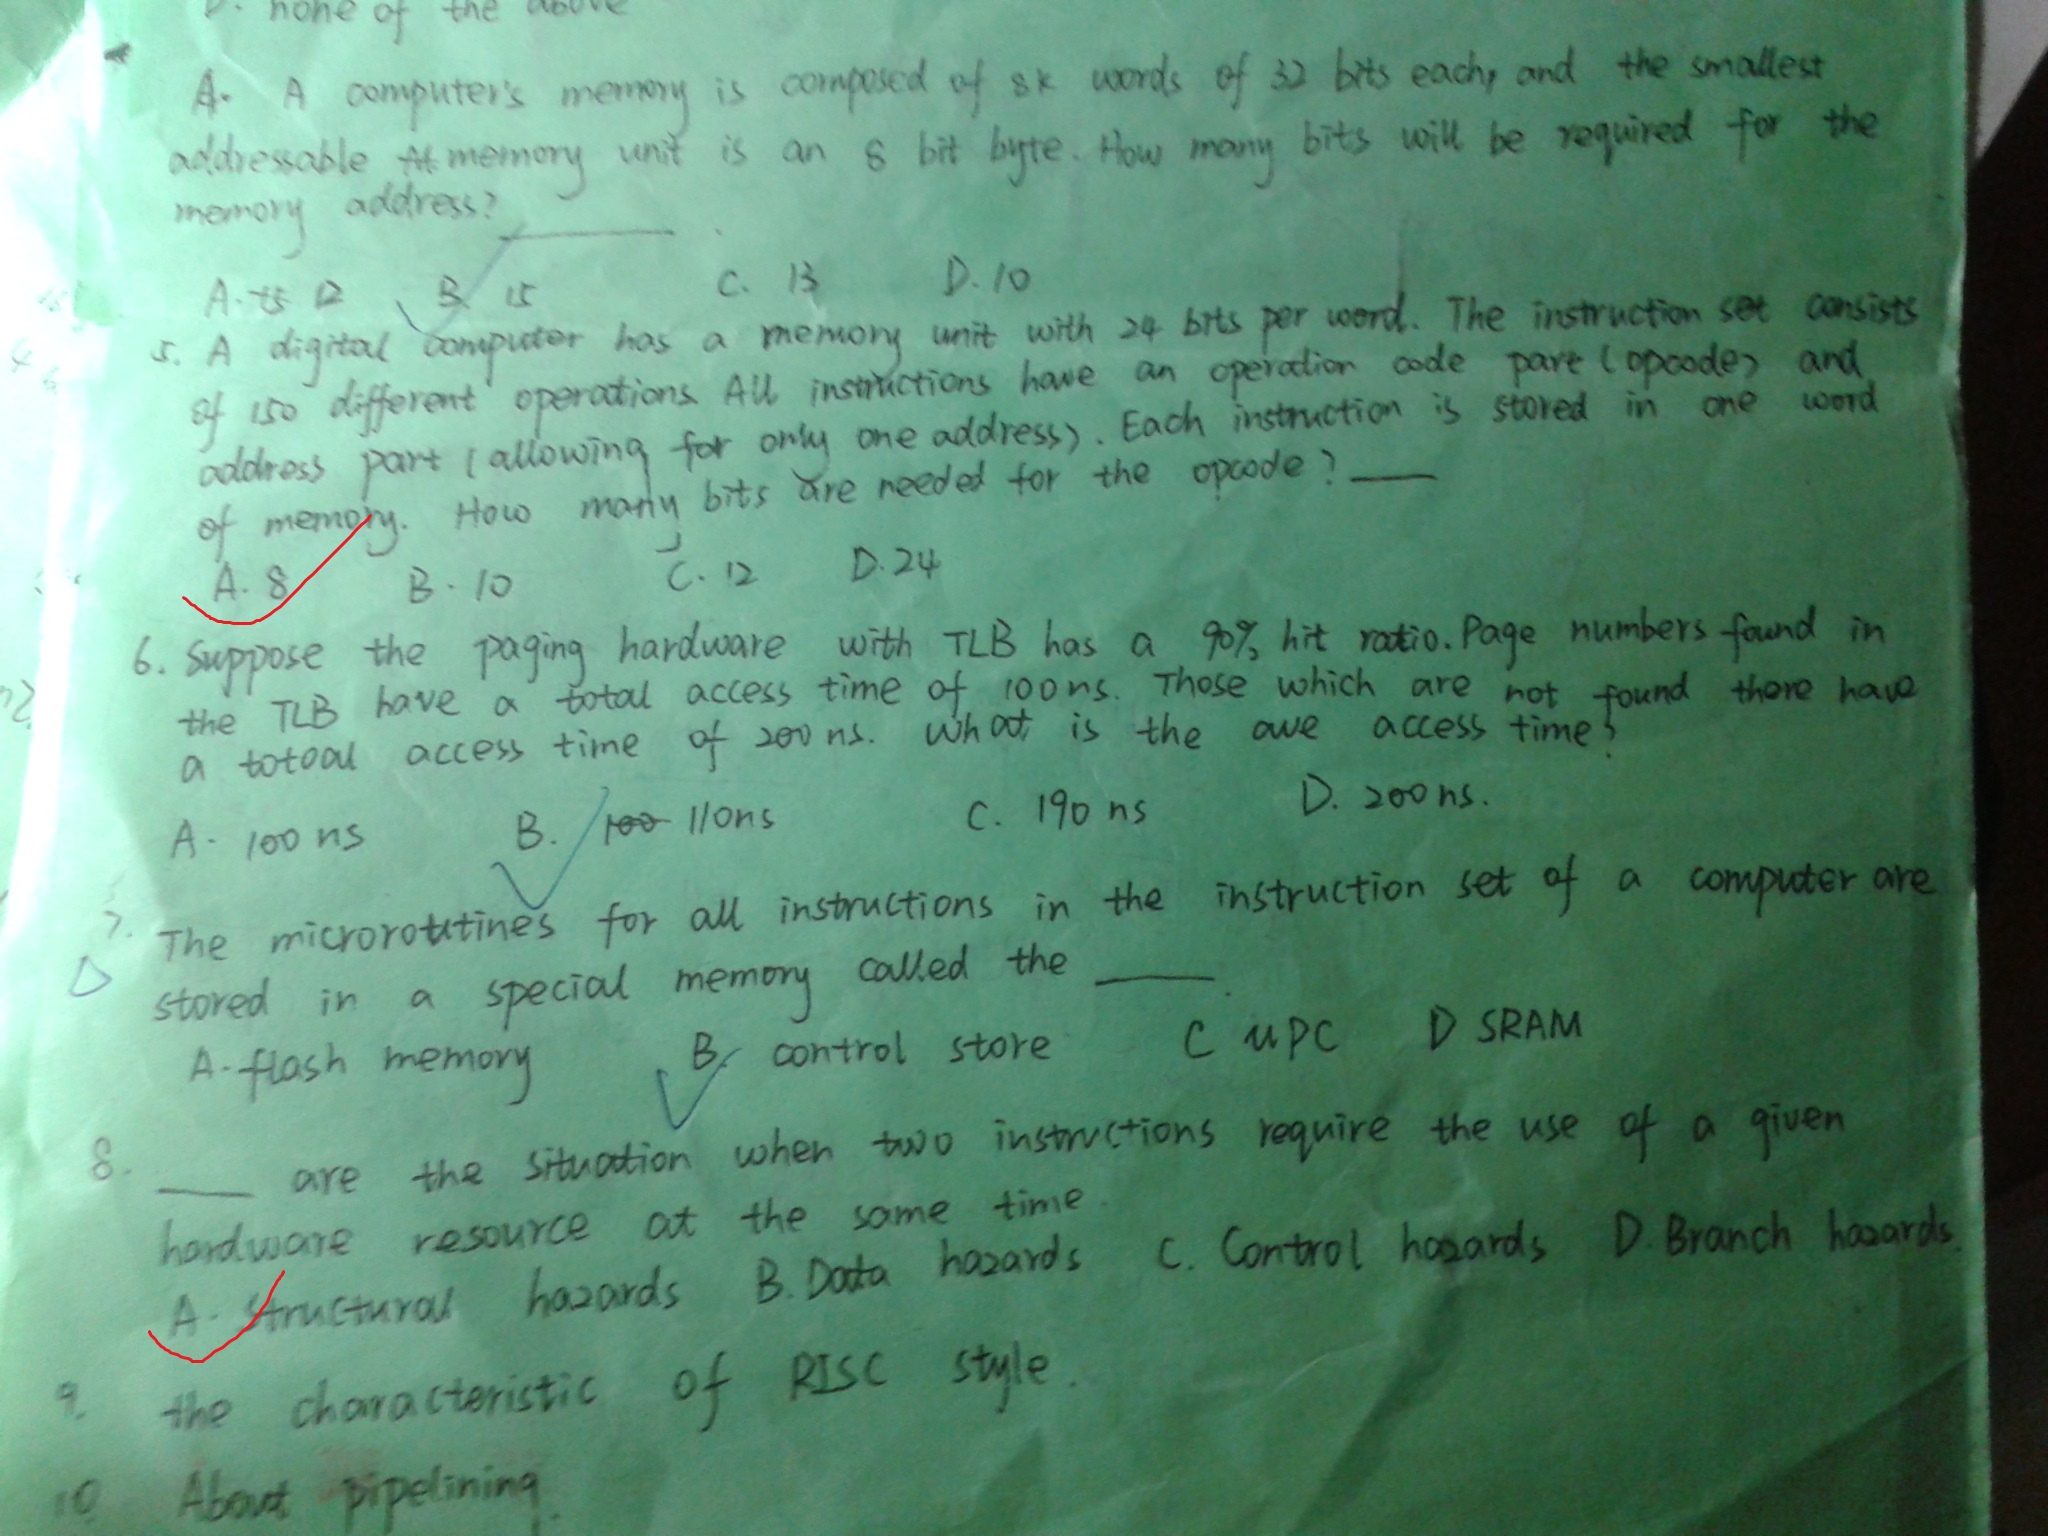 D. none of the above
A. A computer's memory is composed of 8K words of 32 bits each, and the smallest
addressable memory unit is an 8 bit byte. How many bits will be required for the
memory address? ____ .
A. 12 B. 15 C. 13 D. 10
5. A digital computer has a memory unit with 24 bits per word. The instruction set consists
of 150 different operations. All instructions have an operation code part (opcode) and
address part (allowing for only one address). Each instruction is stored in one word
of memory. How many bits are needed for the opcode? ____
A. 8 B. 10 C. 12 D. 24
6. Suppose the paging hardware with TLB has a 90% hit ratio. Page numbers found in
the TLB have a total access time of 100ns. Those which are not found there have
a totoal access time of 200 ns. What is the ave access time?
A. 100 ns B. 100 110ns C. 190 ns D. 200 ns.
7. The microroutines for all instructions in the instruction set of a computer are
D
stored in a special memory called the ____.
A. flash memory B. control store C uPC D SRAM
8. ____ are the situation when two instructions require the use of a given
hardware resource at the same time.
A. Structural hazards B. Data hazards C. Control hazards D. Branch hazards.
9. the characteristic of RISC style.
10 About pipelining.